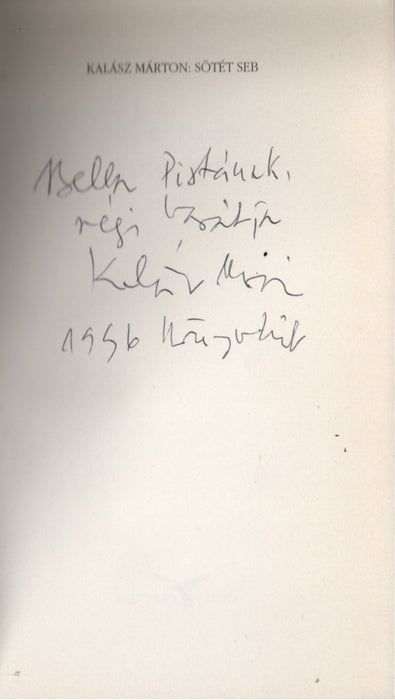 KALÁSZ MÁRTON: SÖTÉT SEB
Bella Pistának,
régi barátja
Kalász Marci
1996 Könyvhét